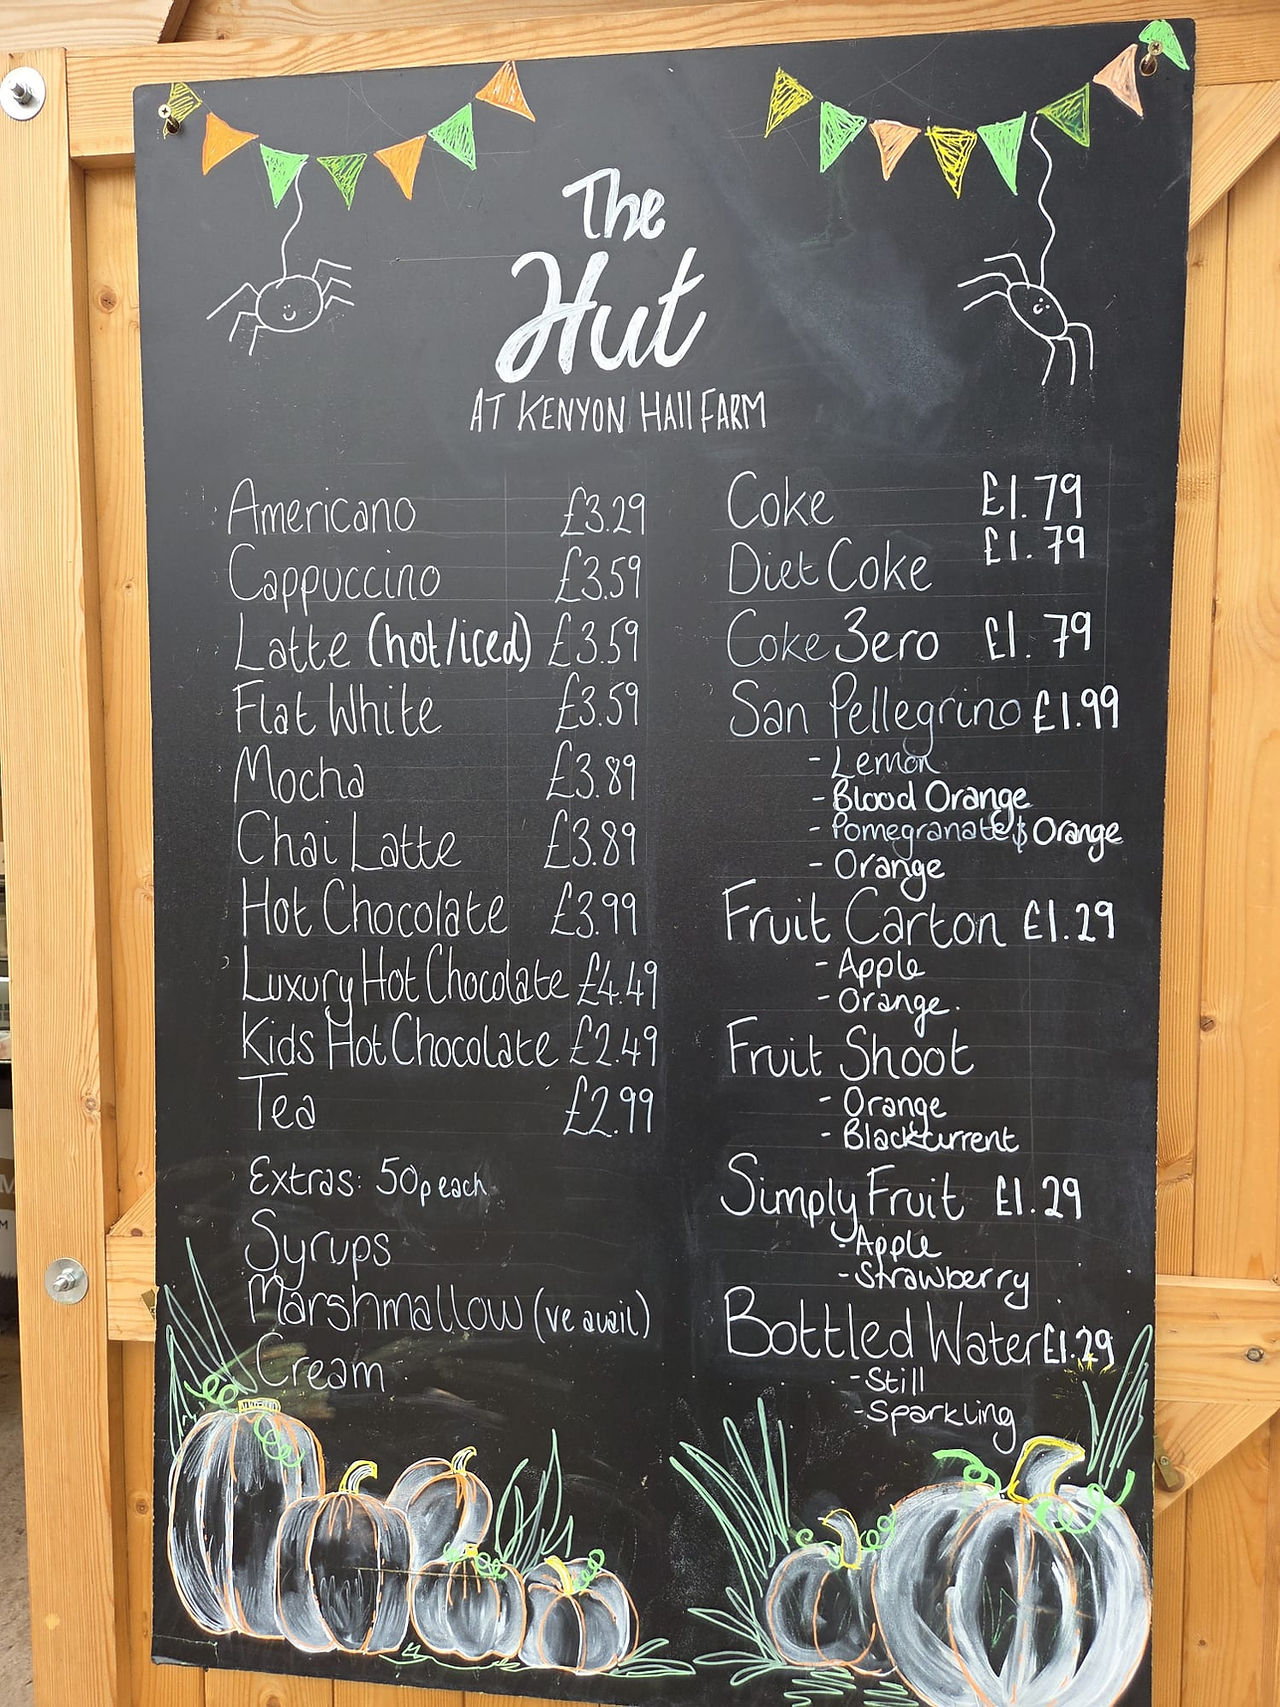 The
Hut
AT KENYON HAll FARM
Americano £3.29
Cappuccino £3.59
Latte (hot/iced) £3.59
Flat White £3.59
Mocha £3.89
Chai Latte £3.89
Hot Chocolate £3.99
Luxury Hot Chocolate £4.49
Kids Hot Chocolate £2.49
Tea £2.99
Extras: 50p each
Syrups
Marshmallow (ve avail)
Cream
Coke £1.79
Diet Coke £1.79
Coke Zero £1.79
San Pellegrino £1.99
- Lemon
- Blood Orange
- Pomegranate & Orange
- Orange
Fruit Carton £1.29
- Apple
- Orange.
Fruit Shoot
- Orange
- Blackcurrent
Simply Fruit £1.29
- Apple
- Strawberry
Bottled Water £1.29
- Still
- Sparkling